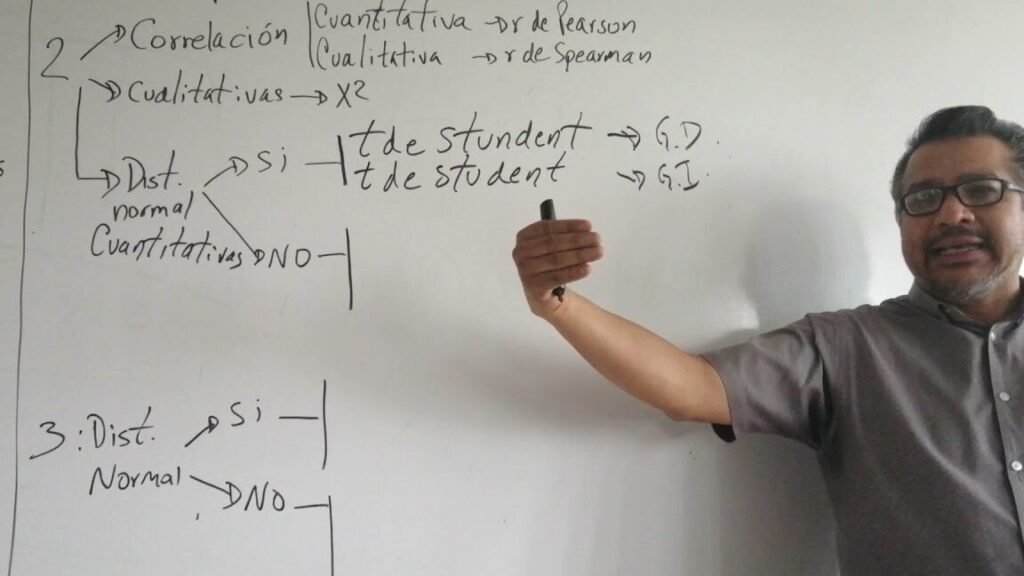 Cuantitativa → r de Pearson
2 → Correlación
Cualitativa → r de Spearman
→ Cualitativas → X2
t de stundent → G.D.
→ Dist. → Si
t de student → G.I.
normal
Cuantitativas → NO
3: Dist. → Si
Normal → NO